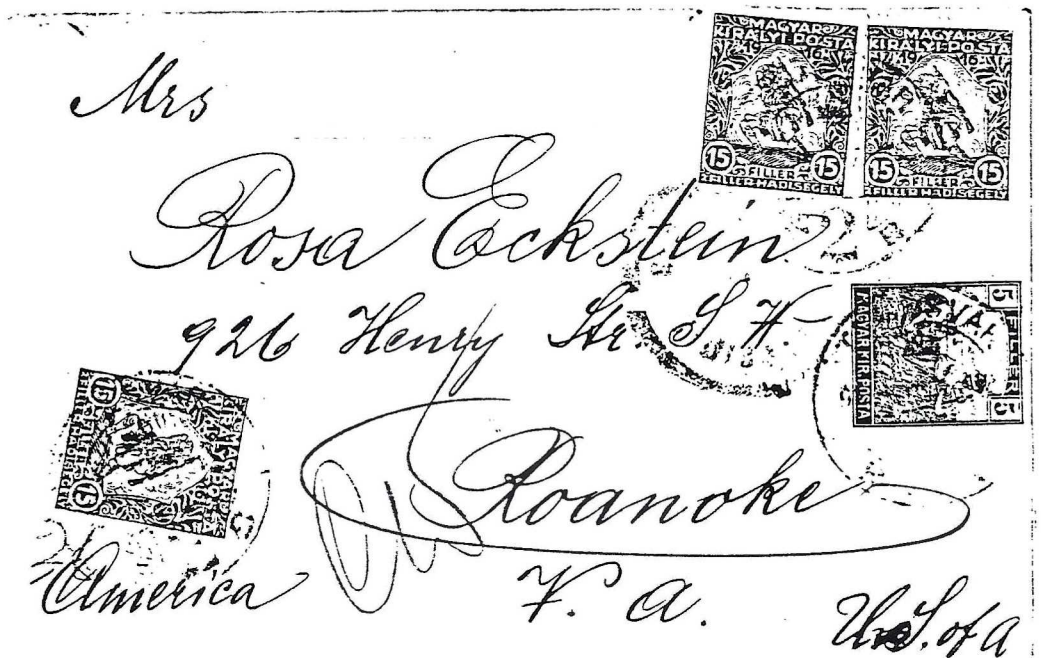 Mrs
Rosa Eckstein
926 Henry Str. S W
Roanoke
America V. A. U. S. of A
MAGYAR
KIRÁLYI POSTA
1916
15 FILLER 15
2 FILLER HADI SEGÉLY
MAGYAR
KIRÁLYI POSTA
1916
15 FILLER 15
2 FILLER HADI SEGÉLY
5 FILLER 5
MAGYAR KIR. POSTA
MAGYAR
KIRÁLYI POSTA
15 FILLER 15
2 FILLER HADI SEGÉLY